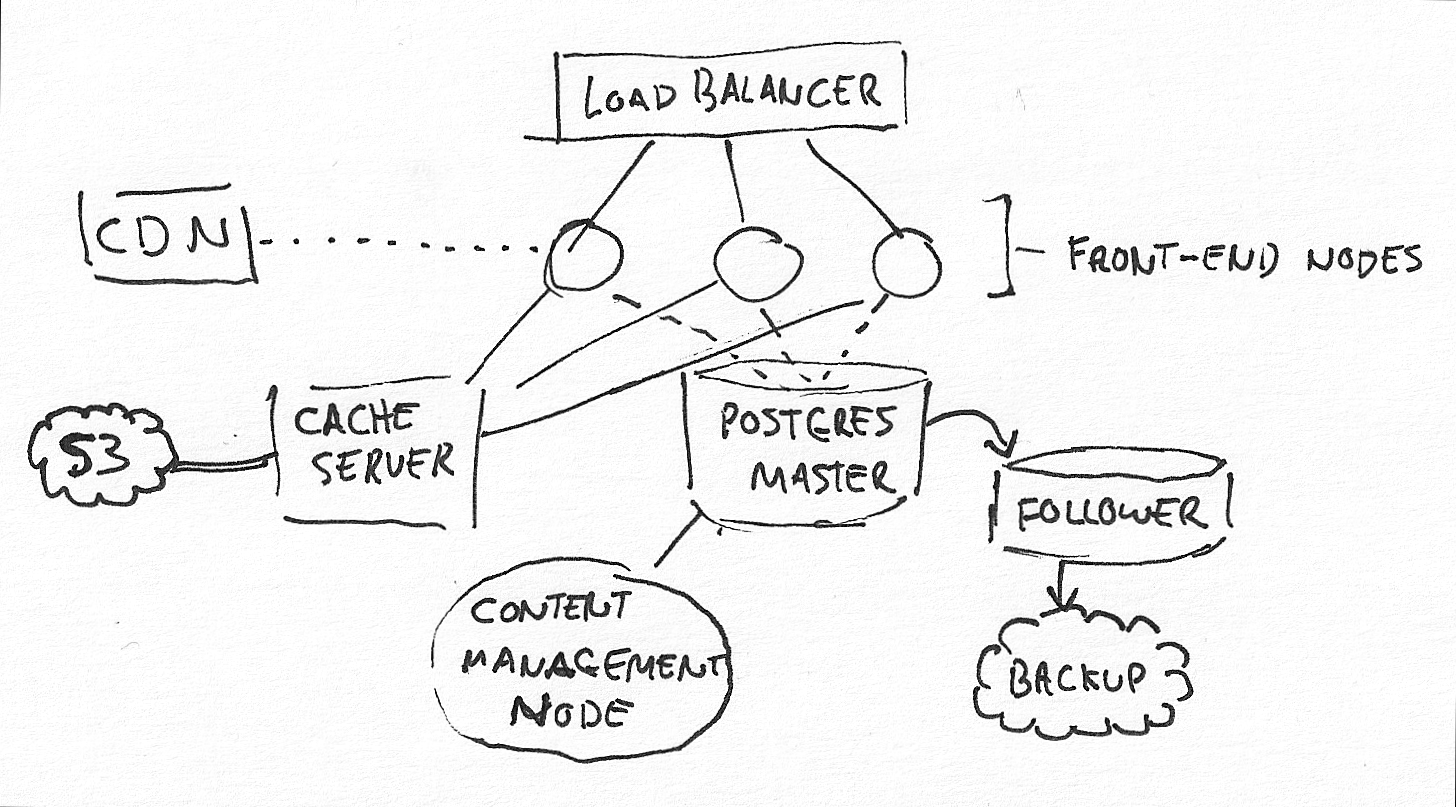 LOAD BALANCER
CDN
FRONT-END NODES
CACHE
SERVER
S3
POSTGRES
MASTER
FOLLOWER
CONTENT
MANAGEMENT
NODE
BACKUP